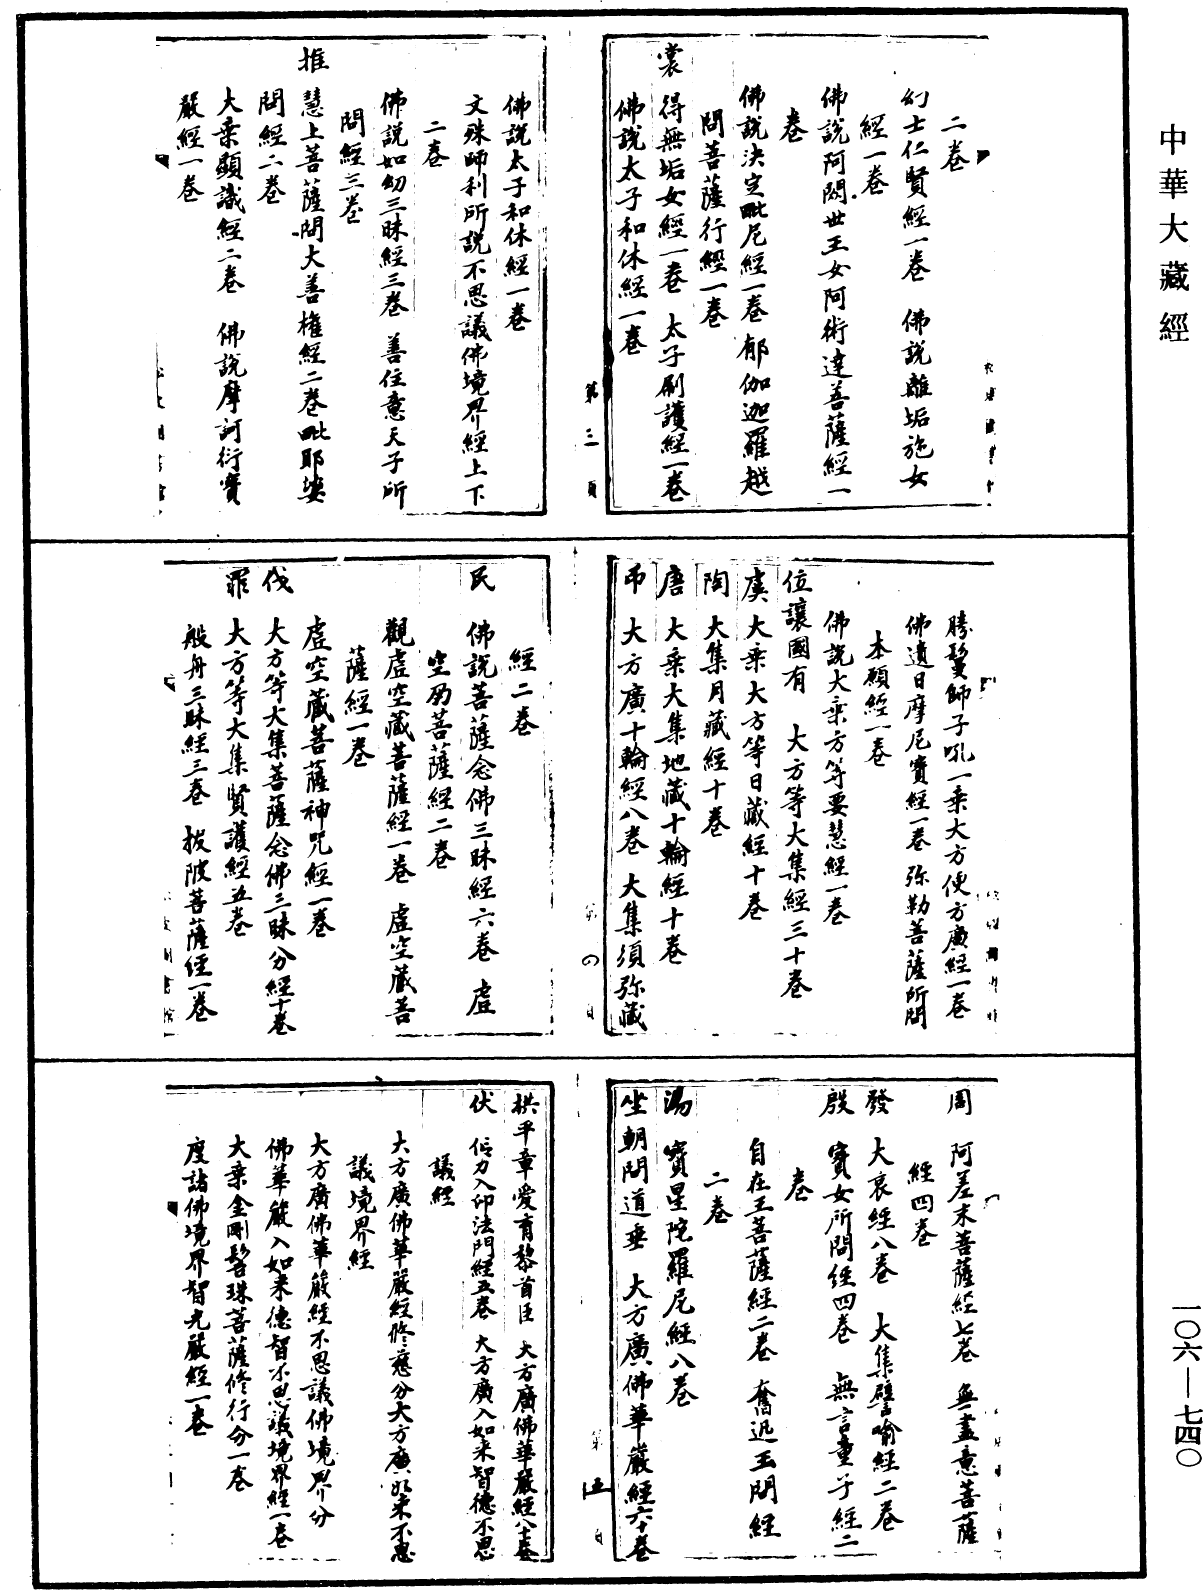 中華大藏經
二卷
幻士仁賢經一卷　佛說離垢施女
經一卷
佛說阿闍世王女阿術達菩薩經一
卷
佛說決定毗尼經一卷　郁伽迦羅越
問菩薩行經一卷
裳　得無垢女經一卷　太子刷護經一卷
佛說太子和休經一卷
第三頁
佛說太子和休經一卷
文殊師利所說不思議佛境界經上下
二卷
佛說如幻三昧經三卷　善住意天子所
問經三卷
推　慧上菩薩問大善權經二卷　毗耶娑
問經二卷
大乘顯識經二卷　佛說摩訶衍寶
嚴經一卷
勝鬘師子吼一乘大方便方廣經一卷
佛遺日摩尼寶經一卷　弥勒菩薩所問
本願經一卷
佛說大乘方等要慧經一卷
位讓國有　大方等大集經三十卷
虞　大乘大方等日藏經十卷
陶　大集月藏經十卷
唐　大乘大集地藏十輪經十卷
弔　大方廣十輪經八卷　大集須弥藏
經二卷
民　佛說菩薩念佛三昧經六卷　虛
空孕菩薩經二卷
觀虛空藏菩薩經一卷　虛空藏菩
薩經一卷
虛空藏菩薩神咒經一卷
伐　大方等大集菩薩念佛三昧分經十卷
罪　大方等大集賢護經五卷
般舟三昧經三卷　拔陂菩薩經一卷
周　阿差末菩薩經七卷　無盡意菩薩
經四卷
發　大哀經八卷　大集譬喻經二卷
殷　寶女所問經四卷　無言童子經二
卷
自在王菩薩經二卷　奮迅王問經
二卷
湯　寶星陀羅尼經八卷
坐朝問道垂　大方廣佛華嚴經六十卷
第五
拱平章愛育黎首臣　大方廣佛華嚴經八十卷
伏　信力入印法門經五卷　大方廣入如來智德不思
議經
大方廣佛華嚴經修慈分　大方廣如來不思
議境界經
大方廣佛華嚴經不思議佛境界分
佛華嚴入如來德智不思議境界經一卷
大乘金剛髻珠菩薩修行分一卷
度諸佛境界智光嚴經一卷
一〇六—七四〇